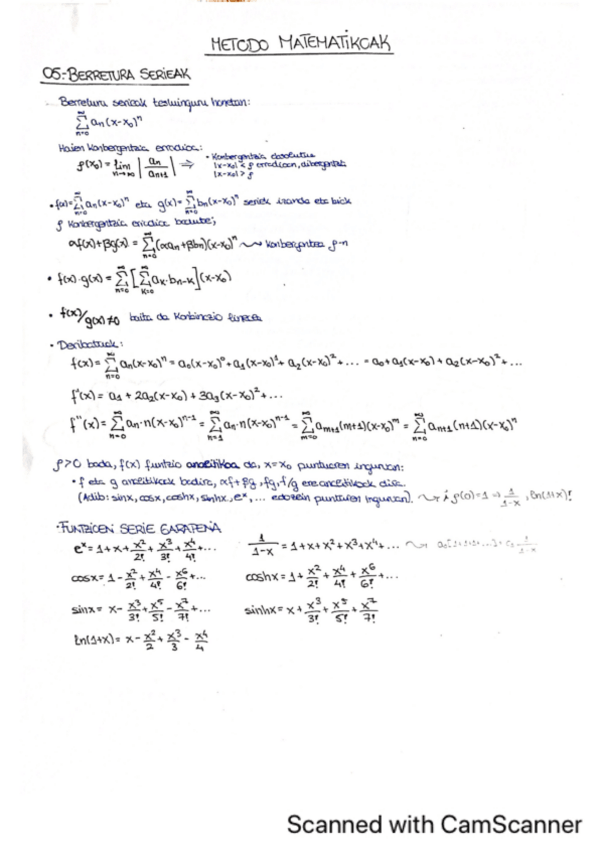 METODO MATEMATIKOAK
05.-BERRETURA SERIEAK
Berretura serieak testuinguru honetan:
∞∑n=0 an(x-x₀)ⁿ
Haien konbergentzia erradioa:
ρ(x₀) = lim n→∞ |an/an+1| ⇒ • Konbergentzia absolutua
|x-x₀| < ρ erradioan, dibergentzia
|x-x₀| > ρ
• f(x) = ∞∑n=0 an(x-x₀)ⁿ eta g(x) = ∞∑n=0 bn(x-x₀)ⁿ serieak izanda eta biek
ρ konbergentzia erradioa badute;
αf(x)+βg(x) = ∞∑n=0 (αan+βbn)(x-x₀)ⁿ ⇝ konbergentea ρ-n
• f(x)·g(x) = ∞∑n=0 [∞∑k=0 ak·bn-k](x-x₀)
• f(x)/g(x)≠0 baita da konbinazio lineala
• Deribatuak:
f(x) = ∞∑n=0 an(x-x₀)ⁿ = a₀(x-x₀)⁰ + a₁(x-x₀)¹ + a₂(x-x₀)² + ... = a₀+a₁(x-x₀) + a₂(x-x₀)² + ...
f'(x) = a₁ + 2a₂(x-x₀) + 3a₃(x-x₀)² + ...
f''(x) = ∞∑n=0 an·n(x-x₀)ⁿ⁻¹ = ∞∑n=1 an·n(x-x₀)ⁿ⁻¹ = ∞∑m=0 am+1(m+1)(x-x₀)ᵐ = ∞∑n=0 an+1(n+1)(x-x₀)ⁿ
ρ>0 bada, f(x) funtzio analitikoa da, x=x₀ puntuaren inguruan:
• f eta g analitikoak badira, αf+βg, fg, f/g ere analitikoak dira.
(Adib: sinx, cosx, coshx, sinhx, eˣ, ... edozein punturen inguruan). ⇝ ¡ρ(0)=1 ⇒ 1/1-x, ln(1+x)!
• FUNTZIOEN SERIE GARAPENA
eˣ = 1+x+x²/2!+x³/3!+x⁴/4!+... 1/1-x = 1+x+x²+x³+x⁴+...
cosx = 1-x²/2!+x⁴/4!-x⁶/6!+... coshx = 1+x²/2!+x⁴/4!+x⁶/6!+...
sinx = x-x³/3!+x⁵/5!-x⁷/7!+... sinhx = x+x³/3!+x⁵/5!+x⁷/7!
ln(1+x) = x-x²/2+x³/3-x⁴/4
Scanned with CamScanner